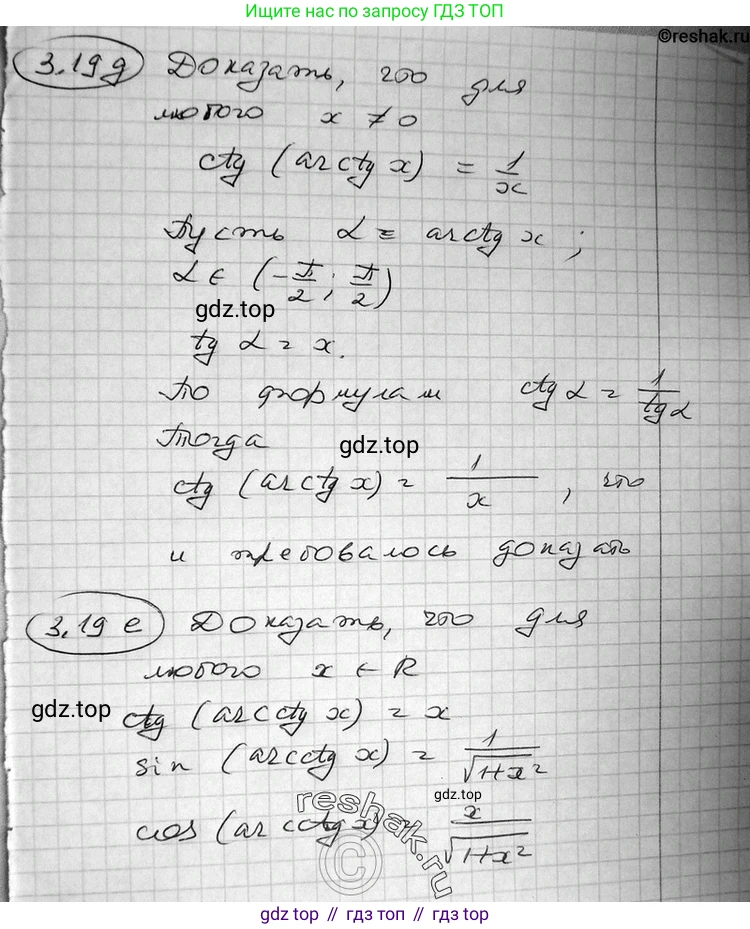 Ищите нас по запросу ГДЗ ТОП
©reshak.ru
3.19 д Доказать, что для
любого x ≠ 0
ctg (arctg x) = 1/x
Пусть α = arctg x ;
α ∈ (-π/2 ; π/2)
gdz.top
tg α = x.
По формулам ctg α = 1/tg α
Тогда
gdz.top
ctg (arctg x) = 1/x , что
и требовалось доказать
3.19 е Доказать, что для
любого x ∈ R
gdz.top
ctg (arcctg x) = x
sin (arcctg x) = 1/√1+x²
gdz.top
cos (arcctg x) = x/√1+x²
reshak.ru
©
gdz.top // гдз топ // gdz.top